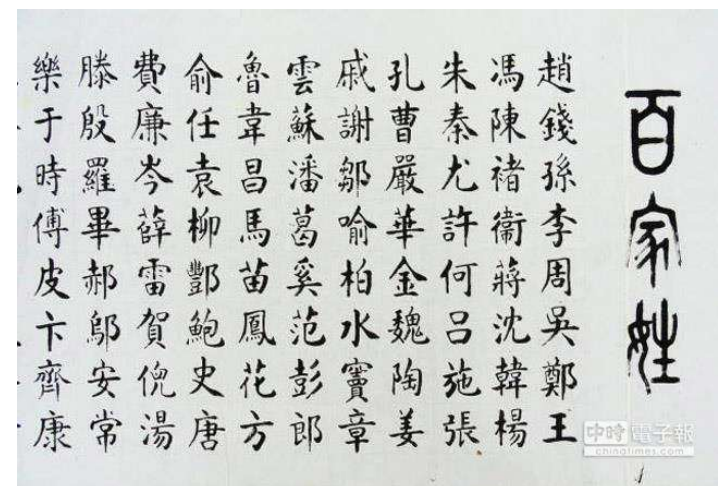 百家姓
趙錢孫李周吳鄭王
馮陳褚衛蔣沈韓楊
朱秦尤許何呂施張
孔曹嚴華金魏陶姜
戚謝鄒喻柏水竇章
雲蘇潘葛奚范彭郎
魯韋昌馬苗鳳花方
俞任袁柳酆鮑史唐
費廉岑薛雷賀倪湯
滕殷羅畢郝鄔安常
樂于時傅皮卞齊康
中時電子報
chinatimes.com